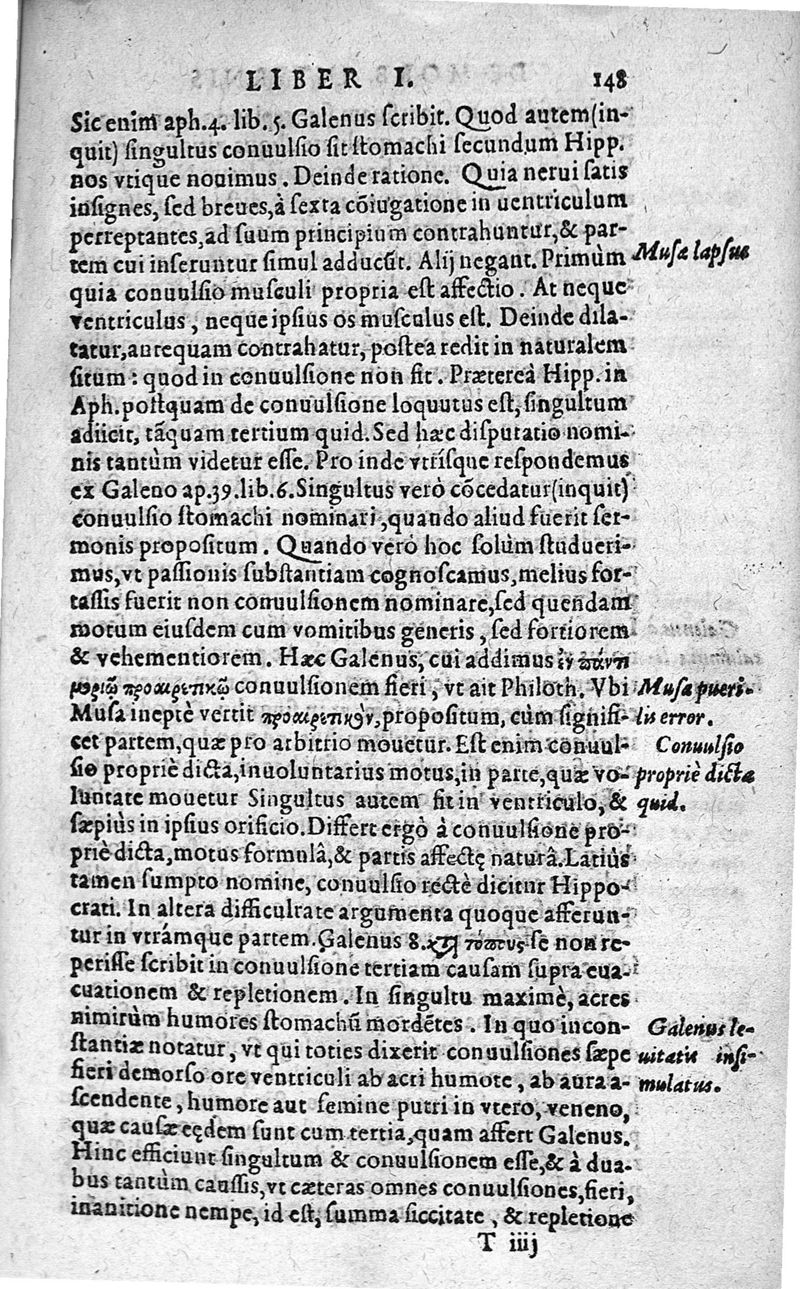 LIBER I. 148
Sic enim aph.4. lib.5. Galenus ſcribit. Quod autem(in-
quit) ſingultus conuulſio ſit ſtomachi ſecundum Hipp.
nos vtique nouimus. Deinde ratione. Quia nerui ſatis
inſignes, ſed breues, à ſexta cõiugatione in uentriculum
perreptantes, ad ſuum principium contrahuntur, & par-
tem cui inſeruntur ſimul adducũt. Alij negant. Primùm
Muſæ lapſus
quia conuulſio muſculi propria eſt affectio. At neque
ventriculus, neque ipſius os muſculus eſt. Deinde dila-
tatur, antequam contrahatur, poſtea redit in naturalem
ſitum: quod in conuulſione non fit. Prætereà Hipp. in
Aph. poſtquam de conuulſione loquutus eſt, ſingultum
adiicit, tãquam tertium quid. Sed hæc diſputatio nomi-
nis tantùm videtur eſſe. Pro inde vtriſque reſpondemus
ex Galeno ap.39.lib.6. Singultus verò cõcedatur(inquit)
conuulſio ſtomachi nominari, quando aliud fuerit ſer-
monis propoſitum. Quando verò hoc ſolùm ſtudueri-
mus, vt paſſionis ſubſtantiam cognoſcamus, melius for-
taſſis fuerit non conuulſionem nominare, ſed quendam
motum eiuſdem cum vomitibus generis, ſed fortiorem
& vehementiorem. Hæc Galenus, cui addimus ἐν παντὶ
μορίῳ προαιρετικῷ conuulſionem fieri, vt ait Philoth. Vbi
Muſa pueri-
Muſa ineptè vertit προαιρετικὸν, propoſitum, cùm ſignifi-
lis error.
cet partem, quæ pro arbitrio mouetur. Eſt enim conuul-
Conuulſio
ſio propriè dicta, inuoluntarius motus, in parte, quæ vo-
propriè dicta
luntate mouetur Singultus autem fit in ventriculo, &
quid.
ſæpiùs in ipſius orificio. Differt ergò à conuulſione pro-
priè dicta, motus formulâ, & partis affectę naturâ. Latiùs
tamen ſumpto nomine, conuulſio rectè dicitur Hippo-
crati. In altera difficultate argumenta quoque afferun-
tur in vtrámque partem. Galenus 8. κτ τόπους ſe non re-
periſſe ſcribit in conuulſione tertiam cauſam ſupra eua-
cuationem & repletionem. In ſingultu maximè, acres
nimirùm humores ſtomachũ mordẽtes. In quo incon-
Galenus le-
ſtantiæ notatur, vt qui toties dixerit conuulſiones ſæpe
uitatis inſi-
fieri demorſo ore ventriculi ab acri humore, ab aura a-
mulatus.
ſcendente, humore aut ſemine putri in vtero, veneno,
quæ cauſæ eędem ſunt cum tertia, quam affert Galenus.
Hinc efficiunt ſingultum & conuulſionem eſſe, & à dua-
bus tantùm cauſſis, vt cæteras omnes conuulſiones, fieri,
inanitione nempe, id eſt, ſumma ſiccitate, & repletione
T iiij